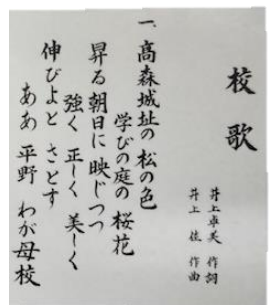 校歌
井上卓美 作詞
井上 俊 作曲
一、高森城址の 松の色
学びの庭の 桜花
昇る朝日に 映じつつ
強く 正しく 美しく
伸びよと さとす
ああ 平野 わが母校